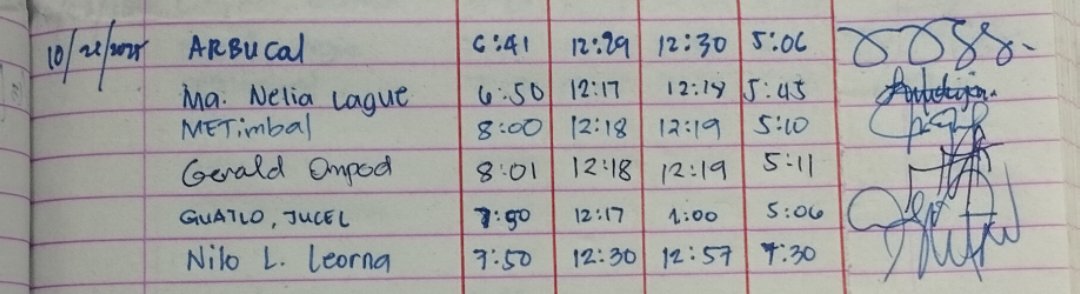 10/21/2025 ARBUCal 6:41 12:29 12:30 5:06
Ma. Nelia Lague 6:50 12:17 12:18 5:45
METimbal 8:00 12:18 12:19 5:10
Gerald Ompod 8:01 12:18 12:19 5:11
GUATLO, JUCEL 7:50 12:17 1:00 5:06
Nilo L. Leorna 7:50 12:30 12:57 7:30